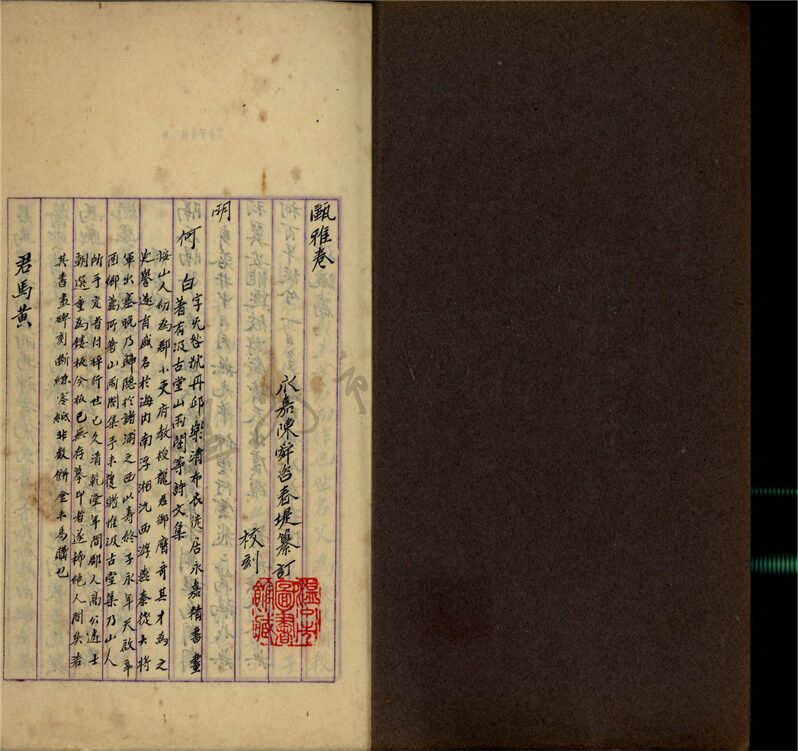 甌雅卷
永嘉陳舜咨春堤纂訂
校刻
明
何白
字无咎號丹邱樂清布衣徙居永嘉精書畫
著有汲古堂山雨閣等詩文集
按山人幼為郡小吏府教授龍君御賡奇其才為之
延譽遂有盛名於海内南浮湘沅西游燕秦從大將
軍出塞晚乃歸隱於諸浦之西以壽終子永年天啟辛
酉鄉薦所著山雨閣集予未獲覩惟汲古堂集乃山人
所手定者付梓行世已久清乾隆年間郡人高公遠士
朝選重為鋟板今板已無存摹印者遂稀絶人間矣若
其書畫碑刻斷縑寒紙非數餅金未易購也
君馬黄
圖書
館藏